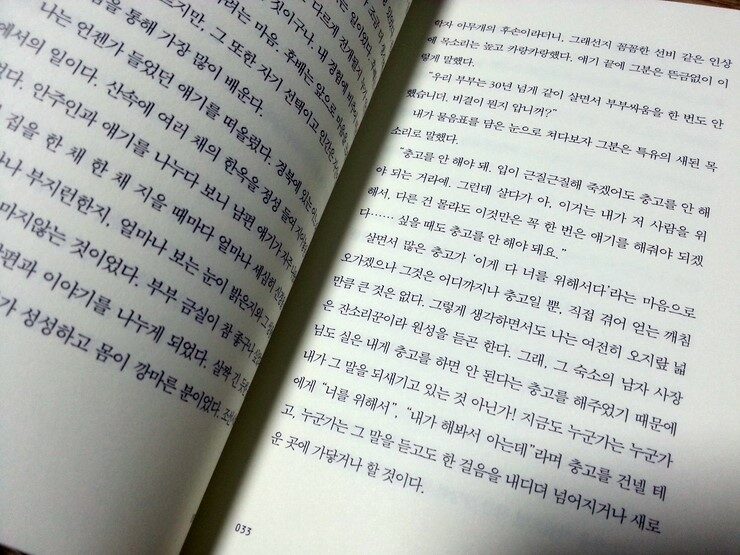 음을 통해 가장 많이 배운다.
나는 언젠가 들었던 얘기를 떠올렸다. 경북에 있는
에서의 일이다. 산속에 여러 채의 한옥을 정성 들여
안주인과 얘기를 나누다 보니 남편 얘기가
집을 한 채 한 채 지을 때마다 얼마나 세심히
나 부지런한지, 얼마나 보는 눈이 밝은지와 그
마지않는 것이었다. 부부 금실이 참 좋구나,
편과 이야기를 나누게 되었다. 살짝 긴
가 성성하고 몸이 깡마른 분이었다.
학자 아무개의 후손이라더니, 그래선지 꼼꼼한 선비 같은 인상
에 목소리는 높고 카랑카랑했다. 얘기 끝에 그분은 뜬금없이 이
렇게 말했다.
“우리 부부는 30년 넘게 같이 살면서 부부싸움을 한 번도 안
했습니다. 비결이 뭔지 압니꺼?”
내가 물음표를 담은 눈으로 쳐다보자 그분은 특유의 새된 목
소리로 말했다.
“충고를 안 해야 돼. 입이 근질근질해 죽겠어도 충고를 안 해
야 되는 거라예. 그런데 살다가 아, 이거는 내가 저 사람을 위
해서, 다른 건 몰라도 이것만은 꼭 한 번은 얘기를 해줘야 되겠
다…… 싶을 때도 충고를 안 해야 돼요.”
살면서 많은 충고가 ‘이게 다 너를 위해서다’라는 마음으로
오가겠으나 그것은 어디까지나 충고일 뿐, 직접 겪어 얻는 깨침
만큼 큰 것은 없다. 그렇게 생각하면서도 나는 여전히 오지랖 넓
은 잔소리꾼이라 원성을 듣곤 한다. 그래, 그 숙소의 남자 사장
님도 실은 내게 충고를 하면 안 된다는 충고를 해주었기 때문에
내가 그 말을 되새기고 있는 것 아닌가! 지금도 누군가는 누군가
에게 “너를 위해서”, “내가 해봐서 아는데”라며 충고를 건넬 테
고, 누군가는 그 말을 듣고도 한 걸음을 내디뎌 넘어지거나 새로
운 곳에 가닿거나 할 것이다.
033